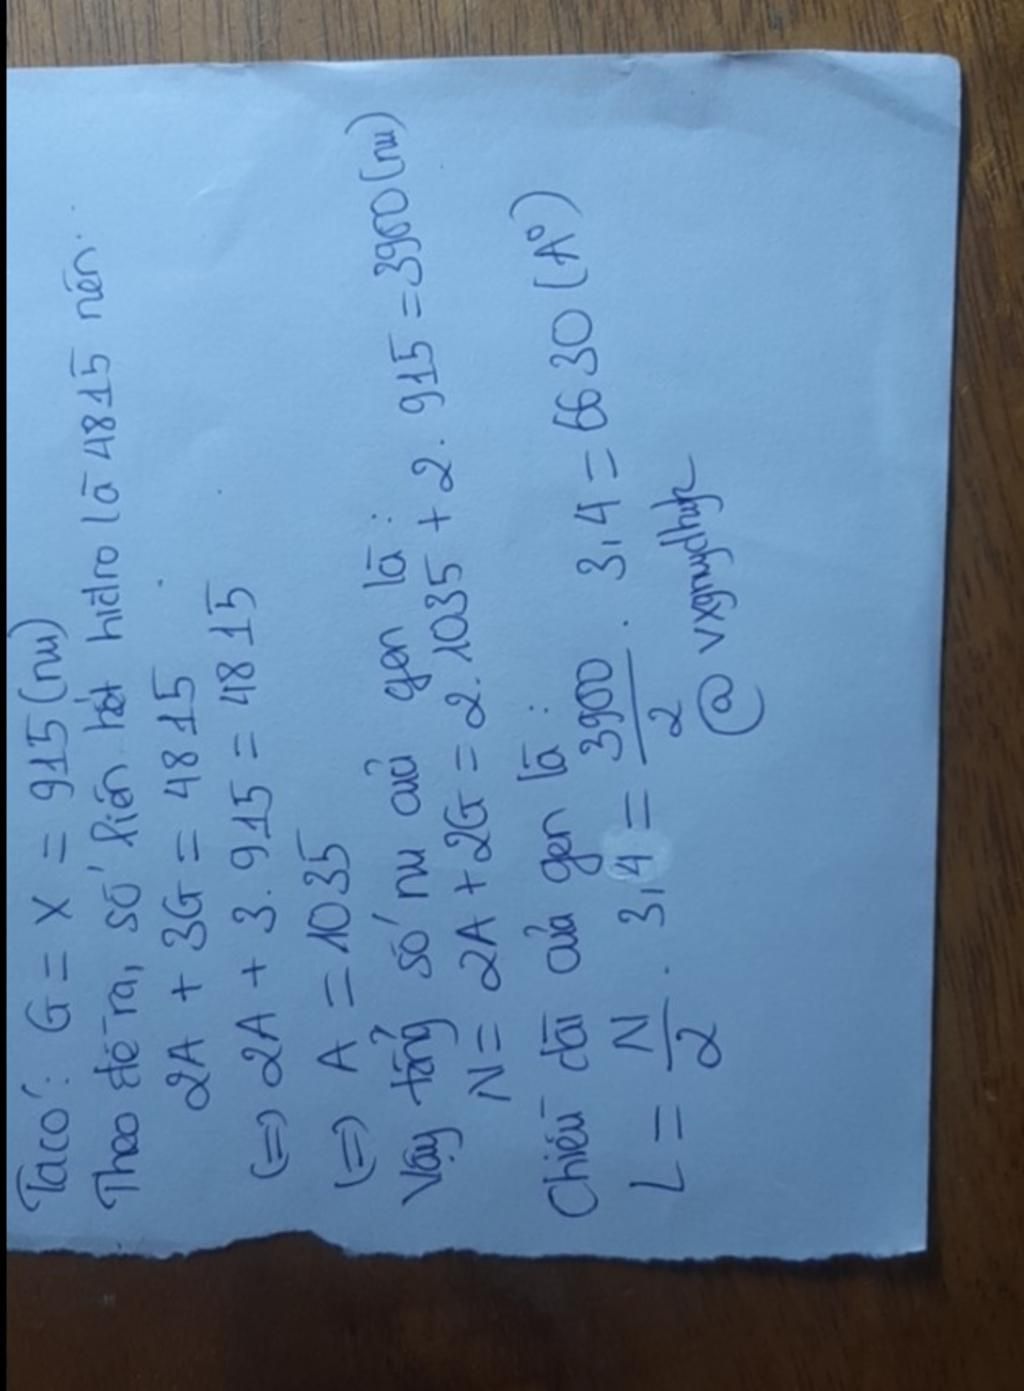 Ta có: G = X = 915 (nu)
Theo đề ra, số liên kết hiđro là 4815 nên.
2A + 3G = 4815
(=) 2A + 3. 915 = 4815
(=) A = 1035
Vậy tổng số nu của gen là:
N = 2A + 2G = 2. 1035 + 2. 915 = 3900 (nu)
Chiều dài của gen là:
L = N/2 . 3,4 = 3900/2 . 3,4 = 6630 (A°)